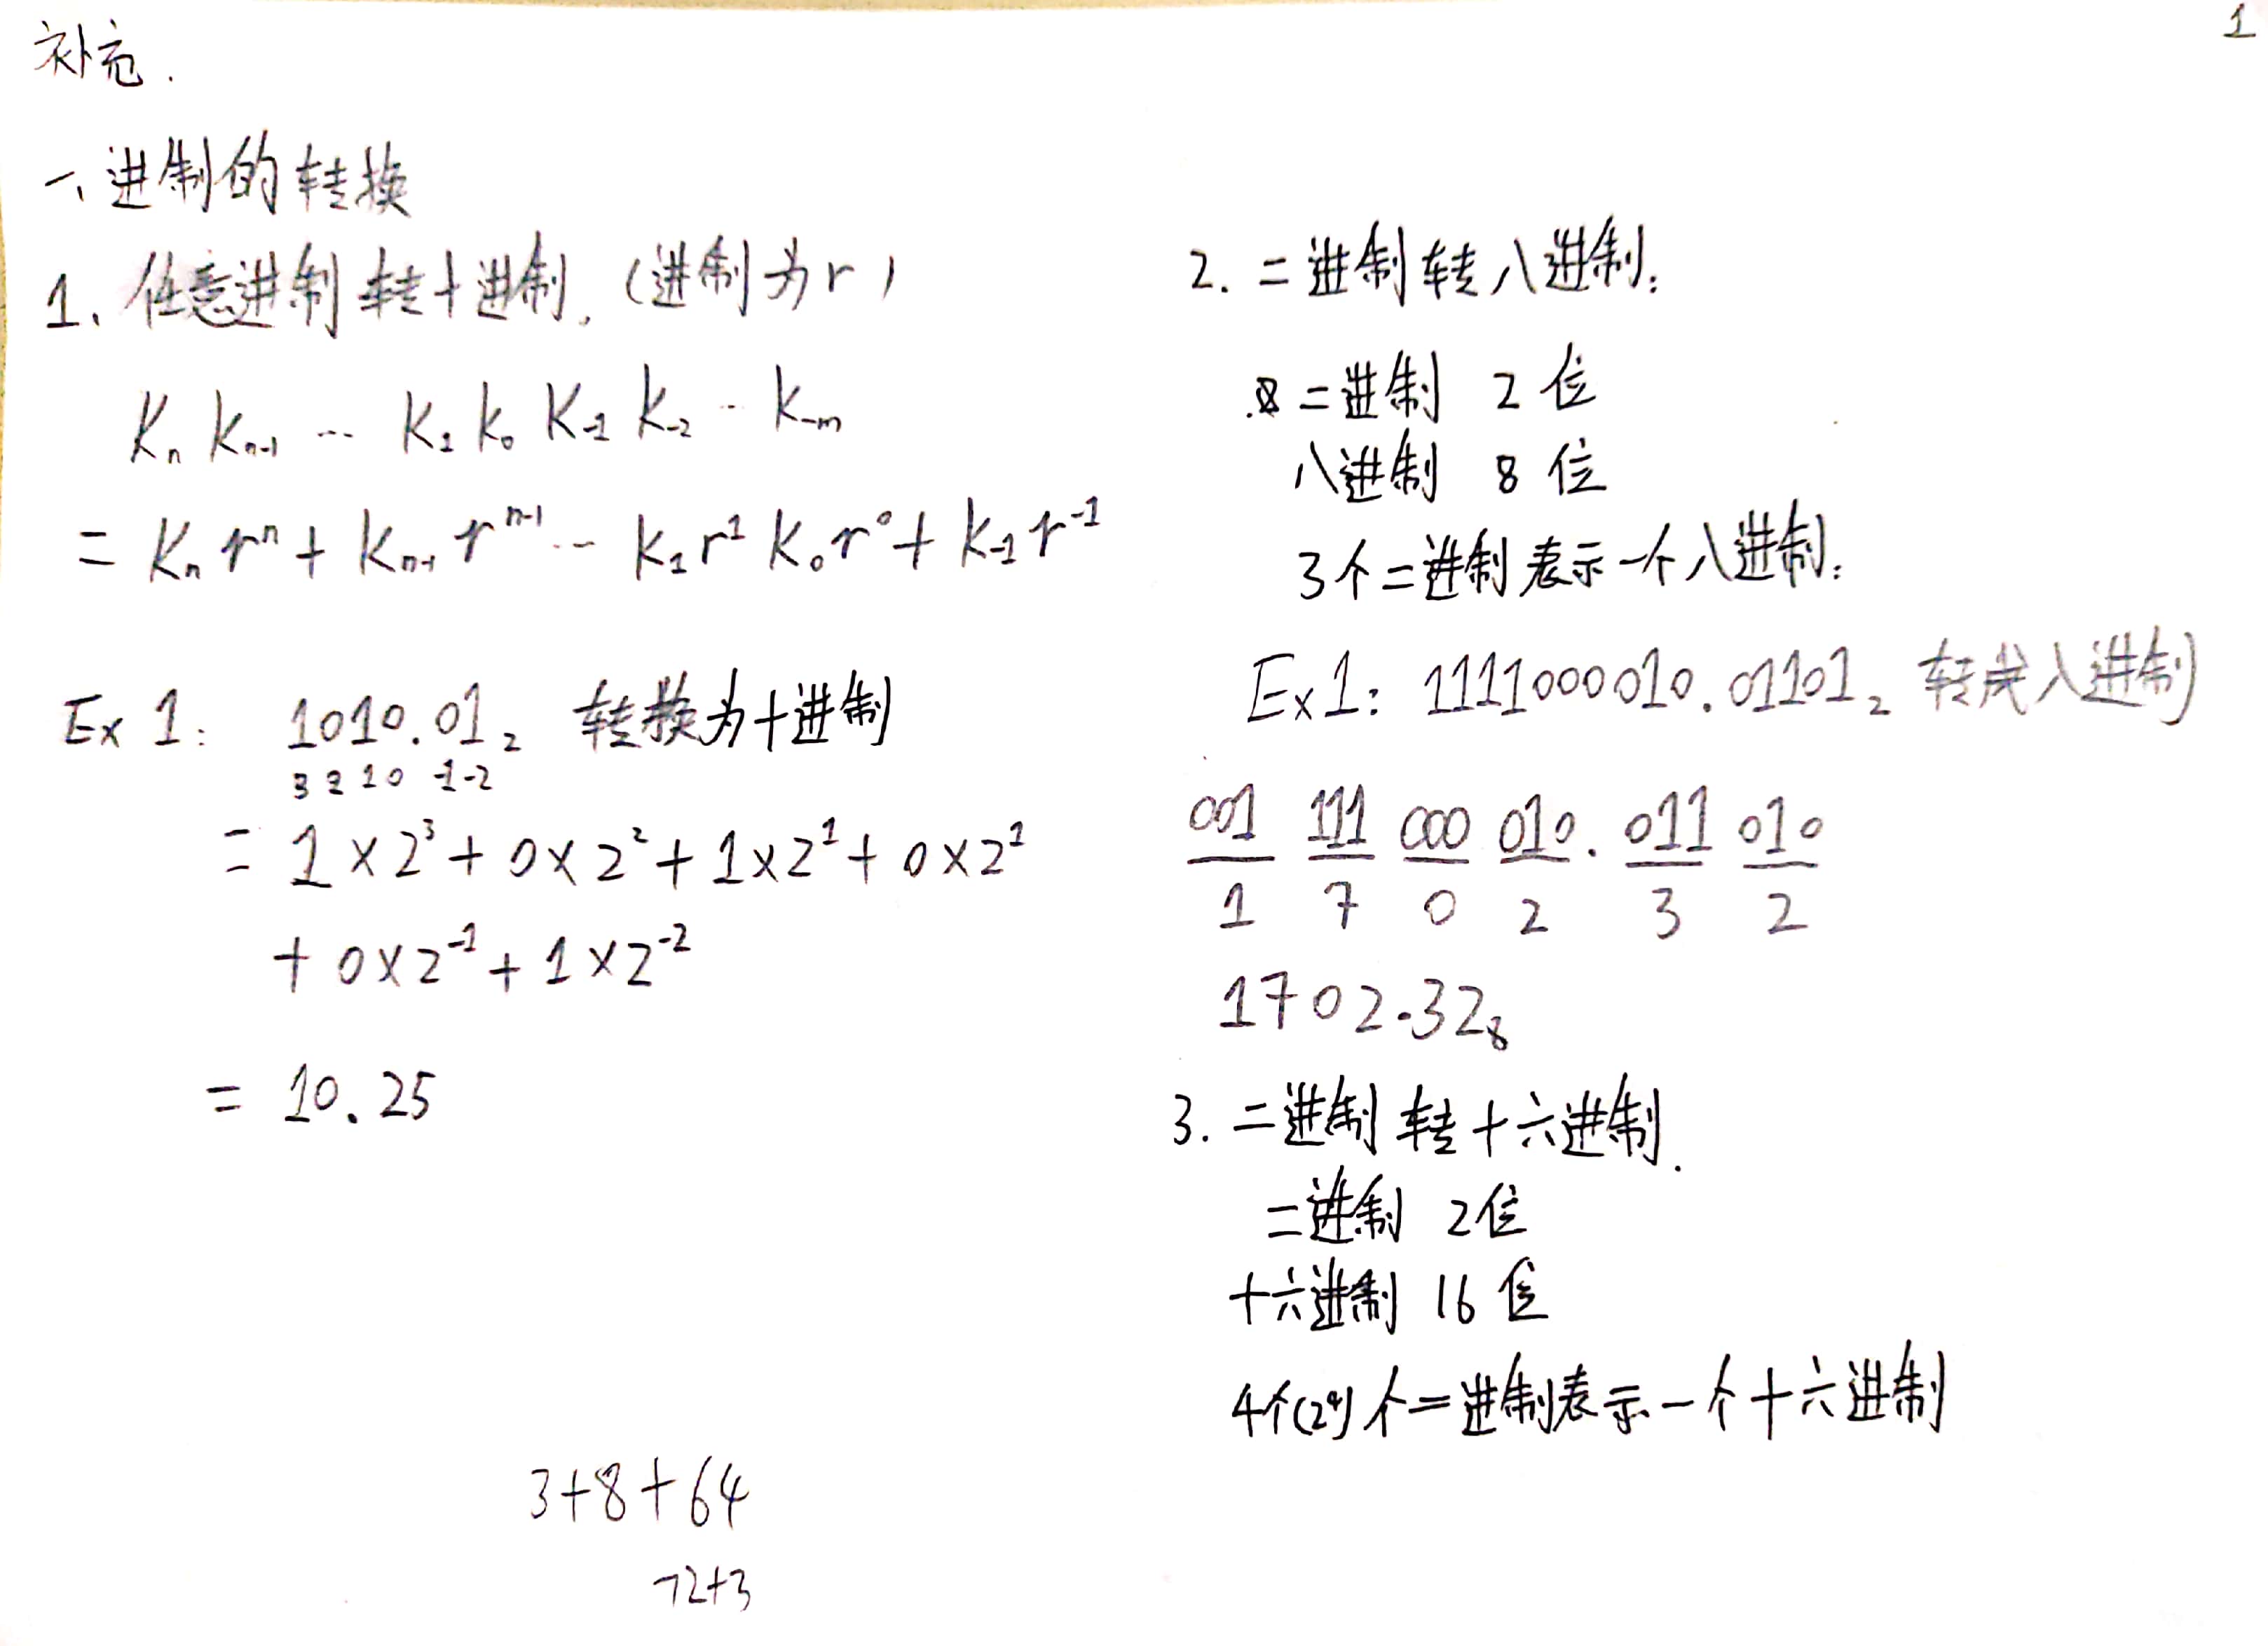 1
补充.
一、进制的转换
1、任意进制转十进制.（进制为r）
Kₙ Kₙ₋₁ … K₁ K₀ K₋₁ K₋₂ … K₋ₘ
= Kₙ rⁿ + Kₙ₋₁ rⁿ⁻¹ … K₁ r¹ K₀ r⁰ + K₋₁ r⁻¹
Ex 1: 1010.01₂ 转换为十进制
3 2 1 0 -1 -2
= 1×2³ + 0×2² + 1×2¹ + 0×2¹
+ 0×2⁻¹ + 1×2⁻²
= 10.25
3+8+64
72+3
2. 二进制转八进制:
二进制 2位
八进制 8位
3个二进制表示一个八进制:
Ex1: 1111000010.01101₂ 转成八进制
001 111 000 010. 011 010
1 7 0 2 3 2
1702.32₈
3. 二进制转十六进制.
二进制 2位
十六进制 16位
4个(2⁴)个二进制表示一个十六进制